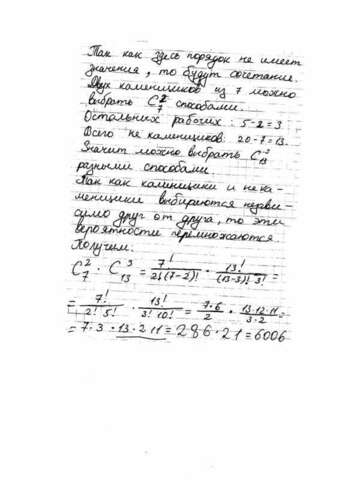 Так как здесь порядок не имеет
значения, то будут сочетания.
Двух каменщиков из 7 можно
выбрать C₇² способами.
Остальных рабочих: 5-2=3.
Всего не каменщиков: 20-7=13.
Значит можно выбрать C₁₃²
разными способами.
Так как каменщики и нека-
менщики выбираются незави-
симо друг от друга, то эти
вероятности перемножаются
Получим:
C₇² · C₁₃³ = 7!/2!(7-2)! · 13!/(13-3)! 3! =
= 7!/2! 5! · 13!/3! 10! = 7·6/2 · 13·12·11/3·2 =
= 7·3 · 13·2·11 = 286·21 = 6006